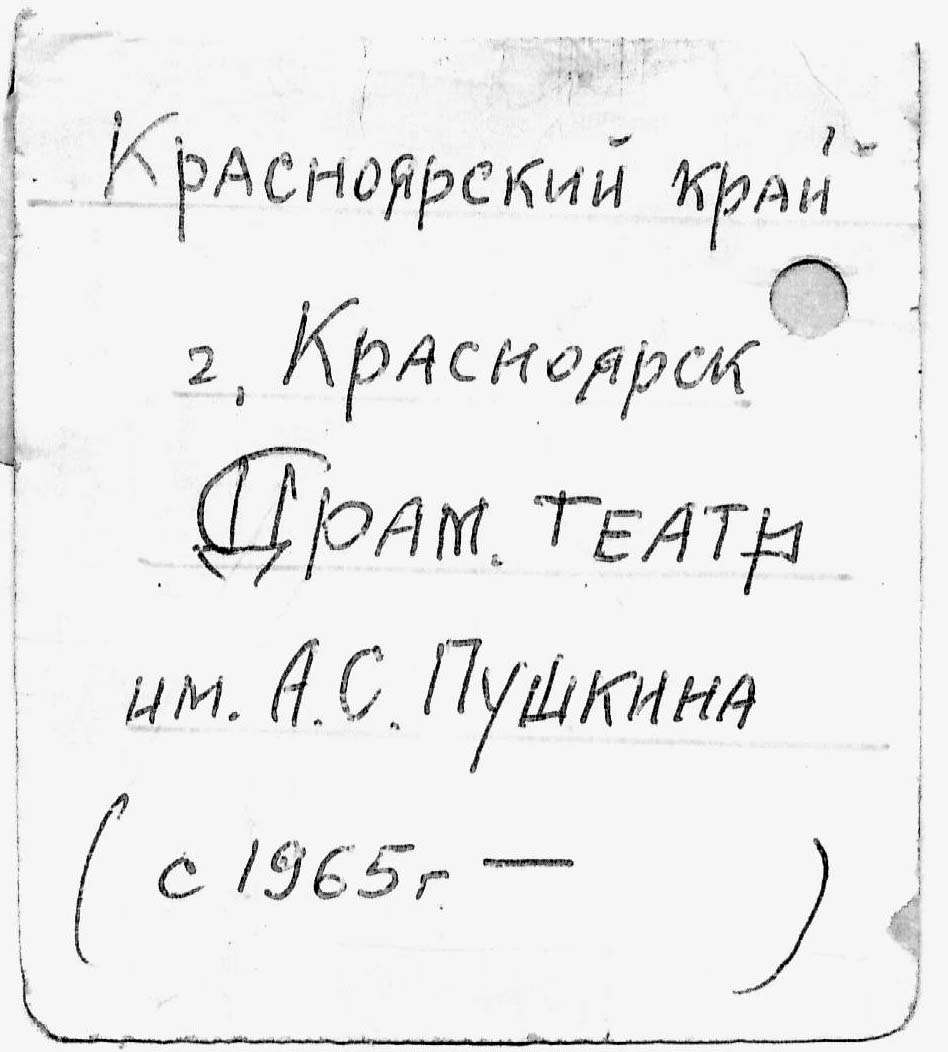 Красноярский край
г. Красноярск
Драм. театр
им. А.С. Пушкина
(с 1965г — )